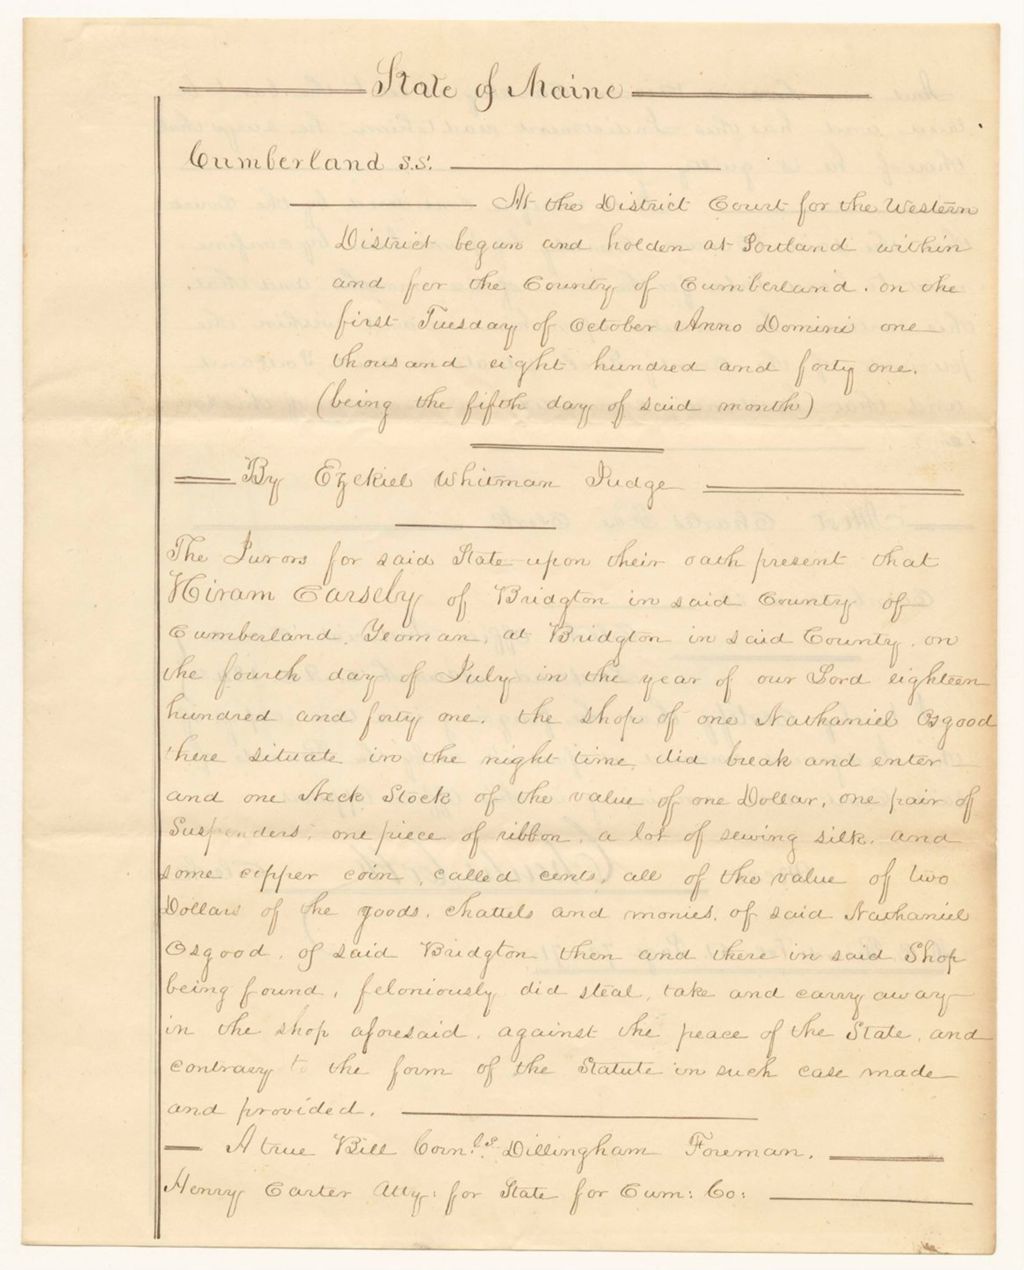 State of Maine
Cumberland S.S.
At the District Court for the Western
District begun and holden at Portland within
and for the County of Cumberland. on the
first Tuesday of October Anno Domini one
thousand eight hundred and forty one.
(being the fifth day of said month)
By Ezekiel Whitman Judge
The Jurors for said State upon their oath present that
Hiram Earseby of Bridgton in said County of
Cumberland, Yeoman, at Bridgton in said County, on
the fourth day of July in the year of our Lord eighteen
hundred and forty one. the shop of one Nathaniel Osgood
there situate in the night time did break and enter
and one Neck Stock of the value of one Dollar, one pair of
Suspenders, one piece of ribbon, a lot of sewing silk, and
some copper coin, called cents, all of the value of two
Dollars of the goods, chattels and monies, of said Nathaniel
Osgood, of said Bridgton then and there in said Shop
being found, feloniously did steal, take and carry away
in the shop aforesaid, against the peace of the State, and
contrary to the form of the Statute in such case made
and provided.
A true Bill Corn.ls. Dillingham Foreman.
Henry Carter Atty: for State for Cum: Co: